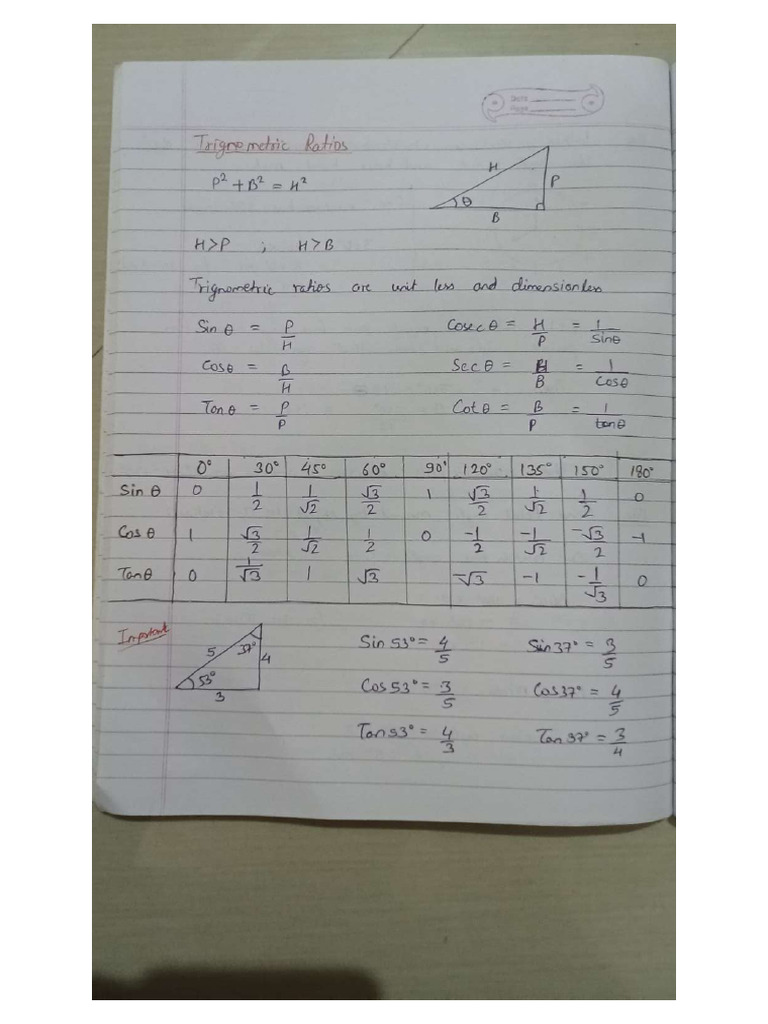 Date
Page
Trignometric Ratios
P² + B² = H²
H
P
θ
B
H>P ; H>B
Trignometric ratios are unit less and dimensionless
Sin θ = P/H Cosec θ = H/P = 1/Sinθ
Cosθ = B/H Sec θ = H/B = 1/Cosθ
Tanθ = P/P Cot θ = B/P = 1/tanθ
0° 30° 45° 60° 90° 120° 135° 150° 180°
Sin θ 0 1/2 1/√2 √3/2 1 √3/2 1/√2 1/2 0
Cos θ 1 √3/2 1/√2 1/2 0 -1/2 -1/√2 -√3/2 -1
Tanθ 0 1/√3 1 √3 -√3 -1 -1/√3 0
Important
5 37° 4
53°
3
Sin 53° = 4/5 Sin 37° = 3/5
Cos 53° = 3/5 Cos 37° = 4/5
Tan 53° = 4/3 Tan 37° = 3/4